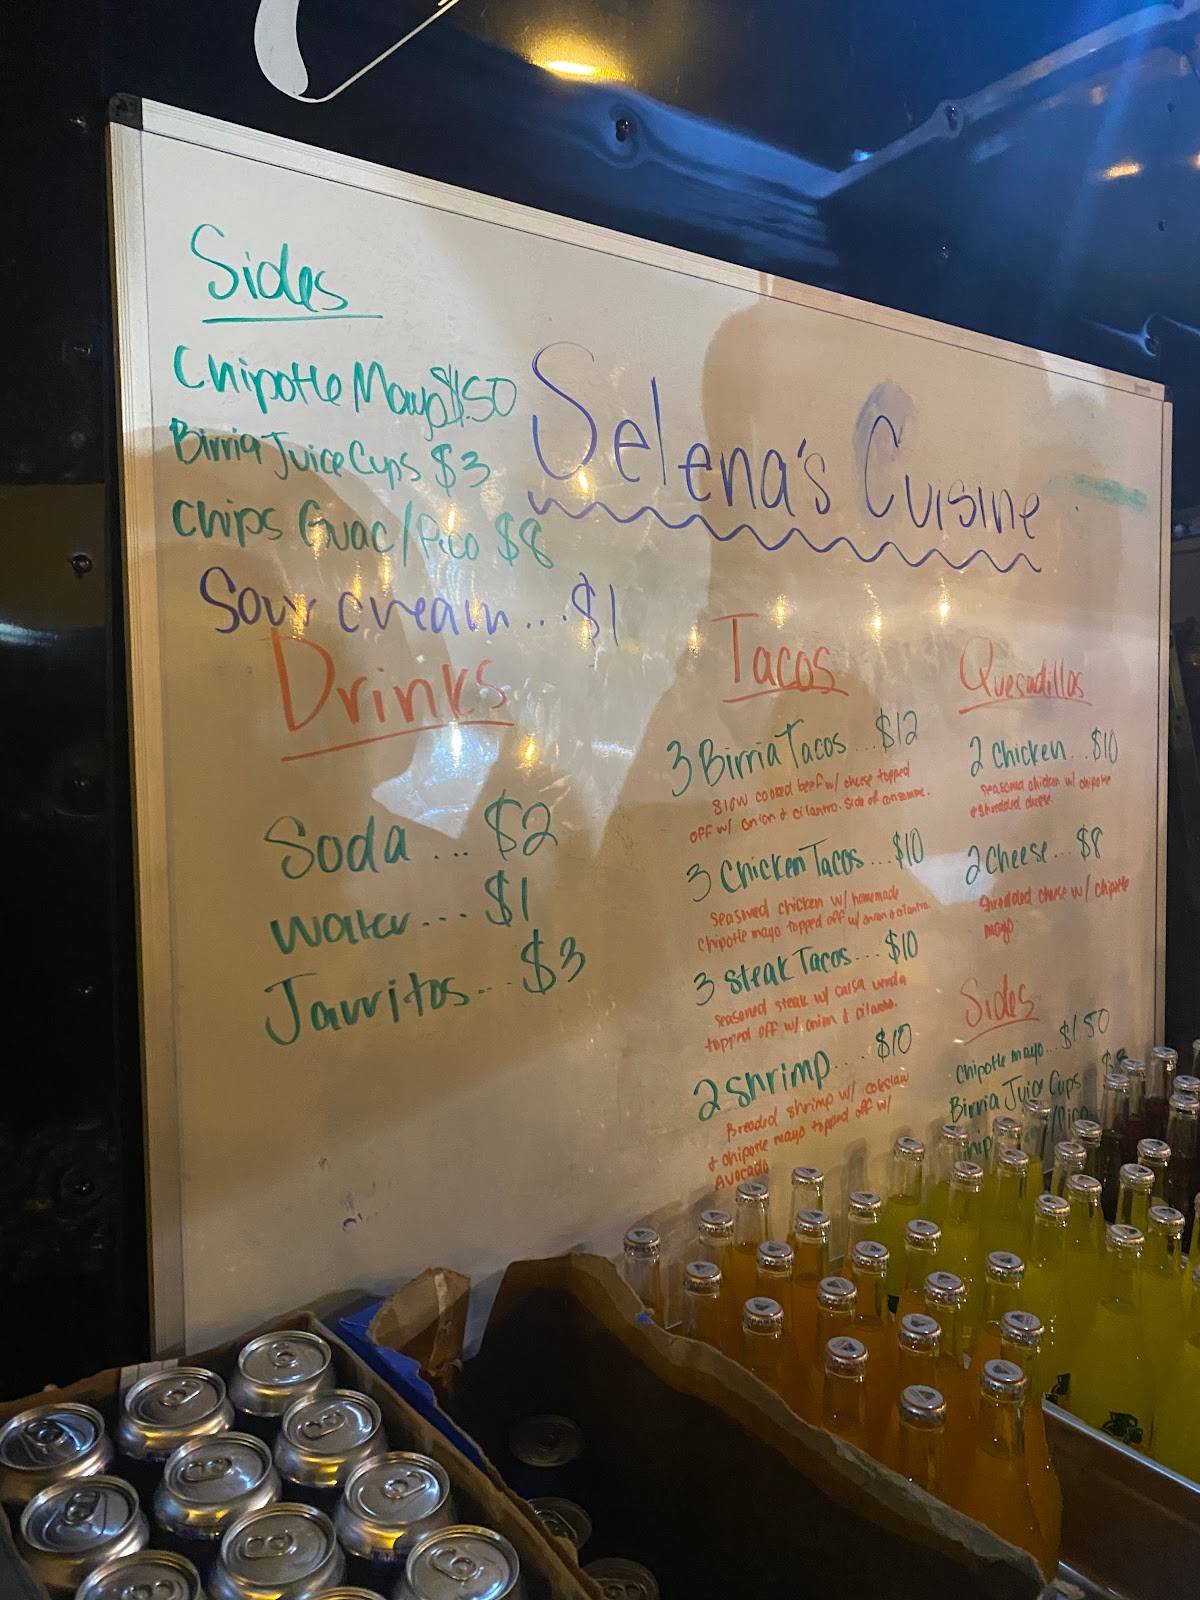 Sides
Chipotle Mayo $1.50
Birria Juice Cups $3
Chips Guac/Pico $8
Sour cream...$1
Selena's Cuisine
Drinks
Soda ... $2
Water... $1
Jarritos...$3
Tacos
3 Birria Tacos...$12
Slow cooked beef w/ cheese topped
off w/ onion & cilantro. Side of consome.
3 Chicken Tacos...$10
Seasoned chicken w/ homemade
Chipotle mayo topped off w/ onion & cilantro
3 Steak Tacos...$10
Seasoned steak w/ salsa
topped off w/ onion & cilantro.
2 Shrimp....$10
Breaded shrimp w/ coleslaw
& chipotle mayo topped off w/
Avocado
Quesadillas
2 Chicken...$10
Seasoned chicken w/ chipotle
& shredded cheese
2 Cheese...$8
Shredded cheese w/ chipotle
mayo
Sides
Chipotle mayo...$1.50
Birria Juice Cups
/Pico